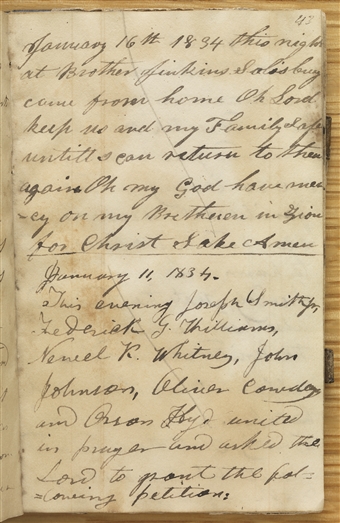 43
January 16th 1834 this night
at Brother Jinkins Salsbury
came from home Oh Lord
keep us and my Family safe
untill I can return to them
again Oh my God have mer
-cy on my Bretheren in Zion
for Christ Sake Amen
January 11, 1834.
This evening Joseph Smith Jr,
Frederick G. Williams,
Newel K. Whitney, John
Johnson, Oliver Cowdery
and Orson Hyde united
in prayer and asked the
Lord to grant the fol-
-lowing petition: